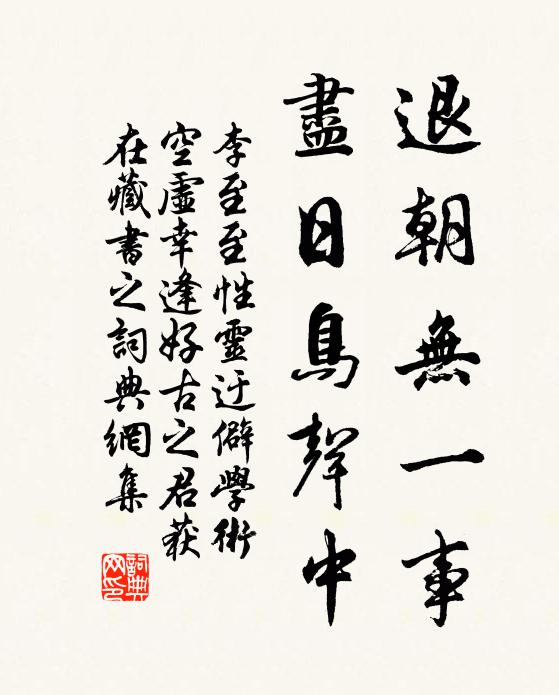 退朝無一事
盡日鳥聲中
李至至性靈迂僻學術
空虛幸逢好古之君获
在藏書之詞典網集
詞典網印